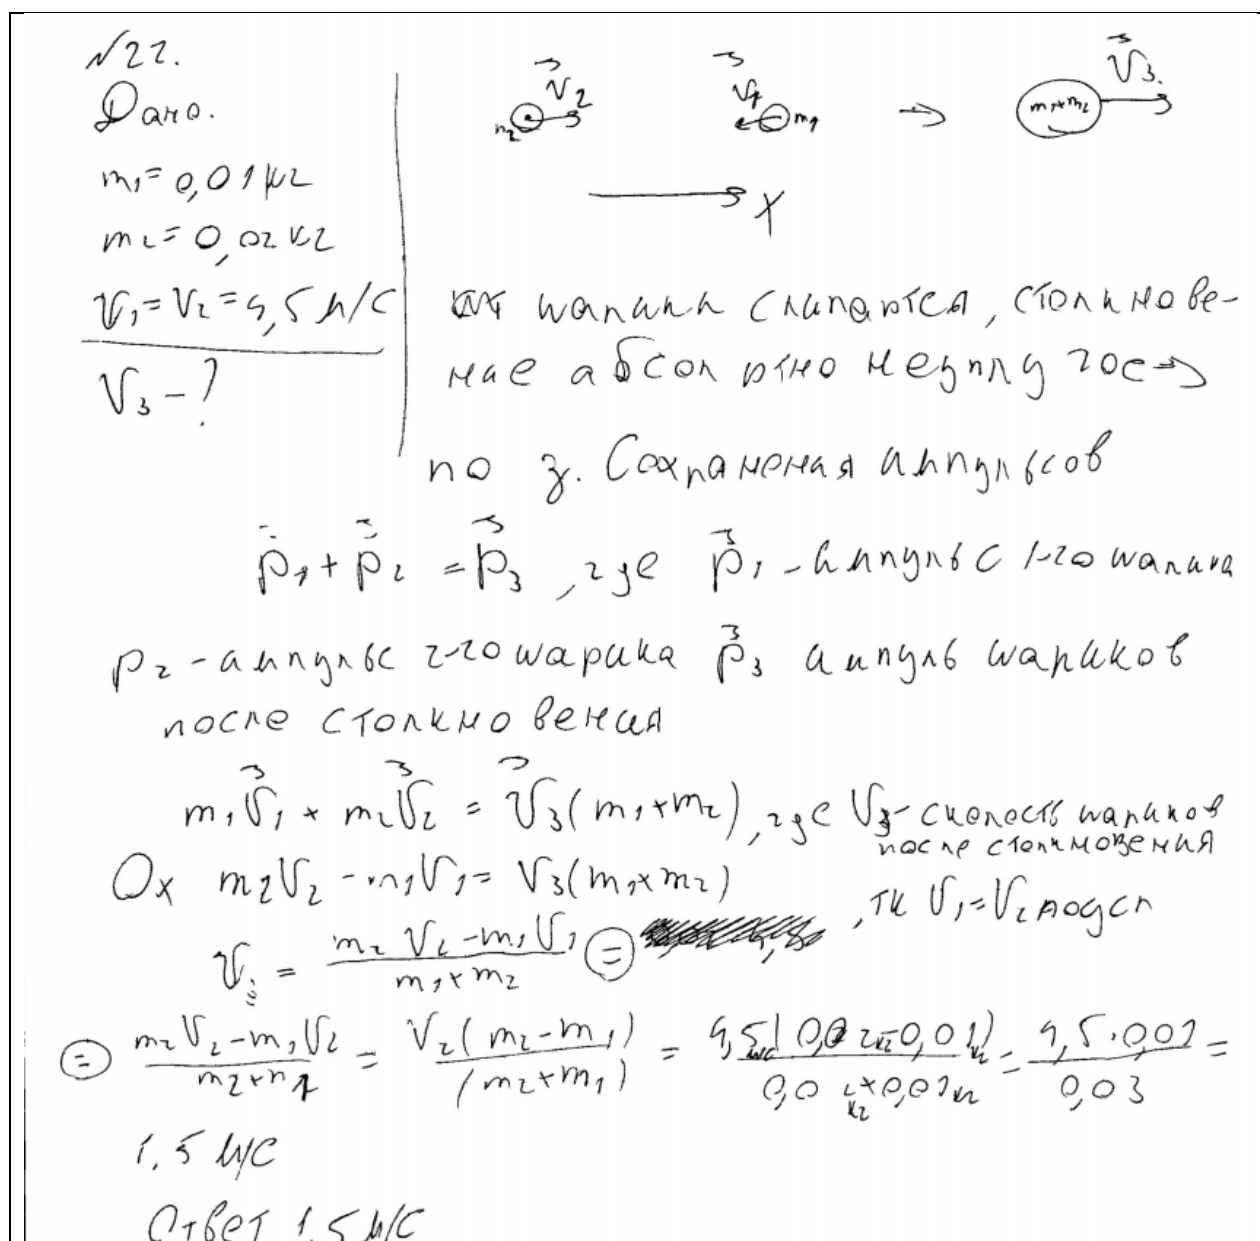 №22.
Дано.
m₁ = 0,01 кг
m₂ = 0,02 кг
V₁ = V₂ = 4,5 м/с
V₃ - ?
m₂ V⃗₂ V⃗₁ m₁ ⇒ m₁+m₂ V⃗₃
X
шарики слипаются, столкнове-
ние абсолютно неупругое ⇒
по з. Сохранения импульсов
p⃗₁ + p⃗₂ = p⃗₃, где p⃗₁ - импульс 1-го шарика
p₂ - импульс 2-го шарика p⃗₃ импуль шариков
после столкновения
m₁V⃗₁ + m₂V⃗₂ = V⃗₃(m₁+m₂), где V₃ - скорость шариков
после столкновения
Ox m₂V₂ - m₁V₁ = V₃(m₁+m₂)
, тк V₁ = V₂ по усл
V₃ = (m₂V₂ - m₁V₁)/(m₁+m₂) =
= (m₂V₂ - m₁V₂)/(m₂+m₁) = V₂(m₂-m₁)/(m₂+m₁) = 4,5 м/с(0,02 кг-0,01 кг)/(0,02 кг+0,01 кг) = 4,5·0,01/0,03 =
1,5 м/с
Ответ 1,5 м/с